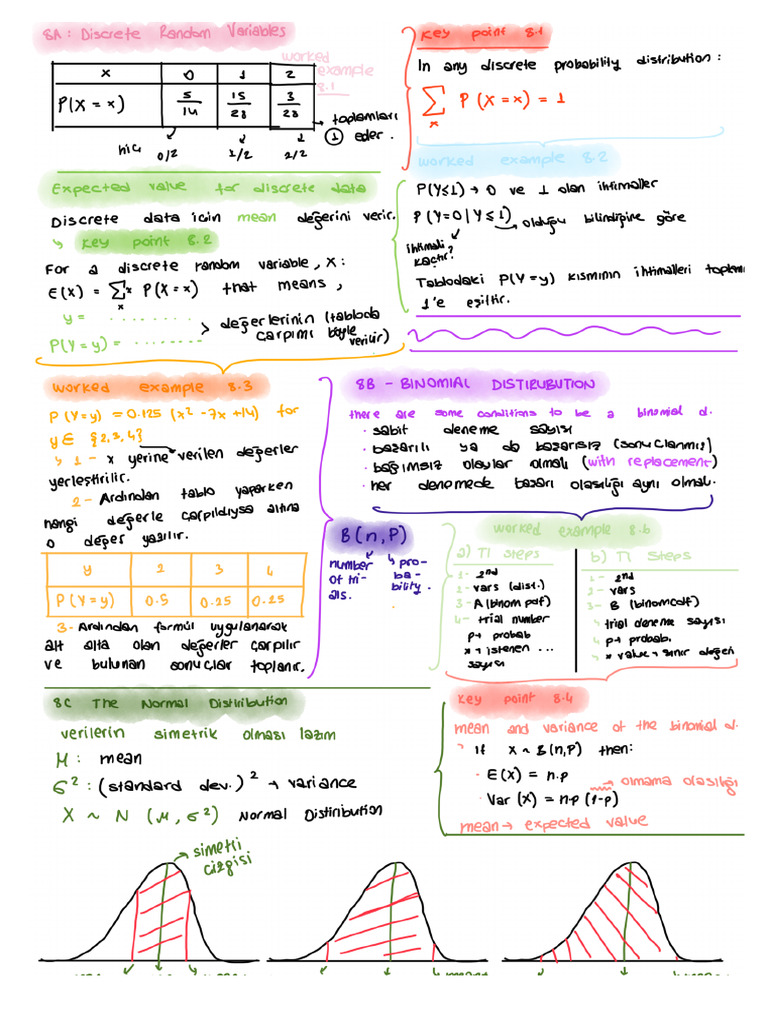 8A: Discrete Random Variables
worked example 8.1
x 0 1 2
P(X = x) 5/14 15/28 3/28
→ toplamları
① eder.
hiç 0/2 1/2 2/2
Key point 8.1
In any discrete probability distribution:
∑ₓ P(X = x) = 1
worked example 8.2
P(Y≤1) → 0 ve 1 olan ihtimaller
P(Y=0 | Y≤1) → olduğu bilindiğine göre
ihtimali
kaçtır?
Tablodaki P(Y=y) kısmının ihtimalleri toplamı
1'e eşittir.
Expected value for discrete data
Discrete data için mean değerini verir.
↳ Key point 8.2
For a discrete random variable, X:
E(X) = ∑ₓ x P(X = x) that means,
y = ........
P(Y = y) = ........
> değerlerinin (tabloda
çarpımı böyle
verilir)
worked example 8.3
P(Y=y) = 0.125 (x² -7x +14) for
y ∈ {2,3,4}
↳ 1- x yerine verilen değerler
yerleştirilir.
2- Ardından tablo yaparken
hangi değerle çarpıldıysa altına
o değer yazılır.
y 2 3 4
P(Y=y) 0.5 0.25 0.25
3- Ardından formül uygulanarak
alt alta olan değerler çarpılır
ve bulunan sonuçlar toplanır.
8B - BINOMIAL DISTIRUBUTION
there are some conditions to be a binomial d.
· sabit deneme sayısı
· başarılı ya da başarısız (sonuçlanmış)
· bağımsız olaylar olmalı (with replacement)
· her denemede başarı olasılığı aynı olmalı.
B(n,P)
number
of tri-
als.
↳ pro-
ba-
bility.
worked example 8.6
a) TI steps
1- 2nd
2- vars (dist.)
3- A (binom pdf)
4- trial number
p→ probab
x → istenen ...
sayısı
b) TI steps
1- 2nd
2- vars
3- B (binomcdf)
↳ trial deneme sayısı
↳ p→ probab.
↳ x value → sınır değeri
8C The Normal Distribution
verilerin simetrik olması lazım
μ: mean
σ²: (standard dev.)² → variance
X ~ N (μ, σ²) Normal Distribution
Key point 8.4
mean and variance of the binomial d.
If X ~ B(n,P) then:
· E(X) = n.p
· Var (X) = n.p (1-p) → olmama olasılığı
mean → expected value
→ simetri
çizgisi